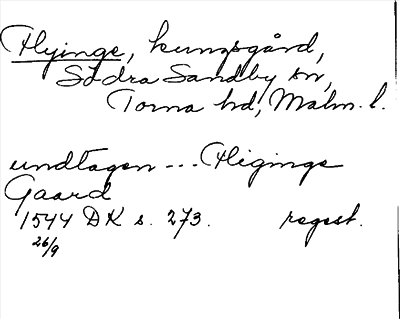 Flyinge, kungsgård,
Södra Sandby sn,
Torna hd, Malm. l.
undtagen --- Fliginge
Gaard
1544 DK s. 273. regest.
26/9